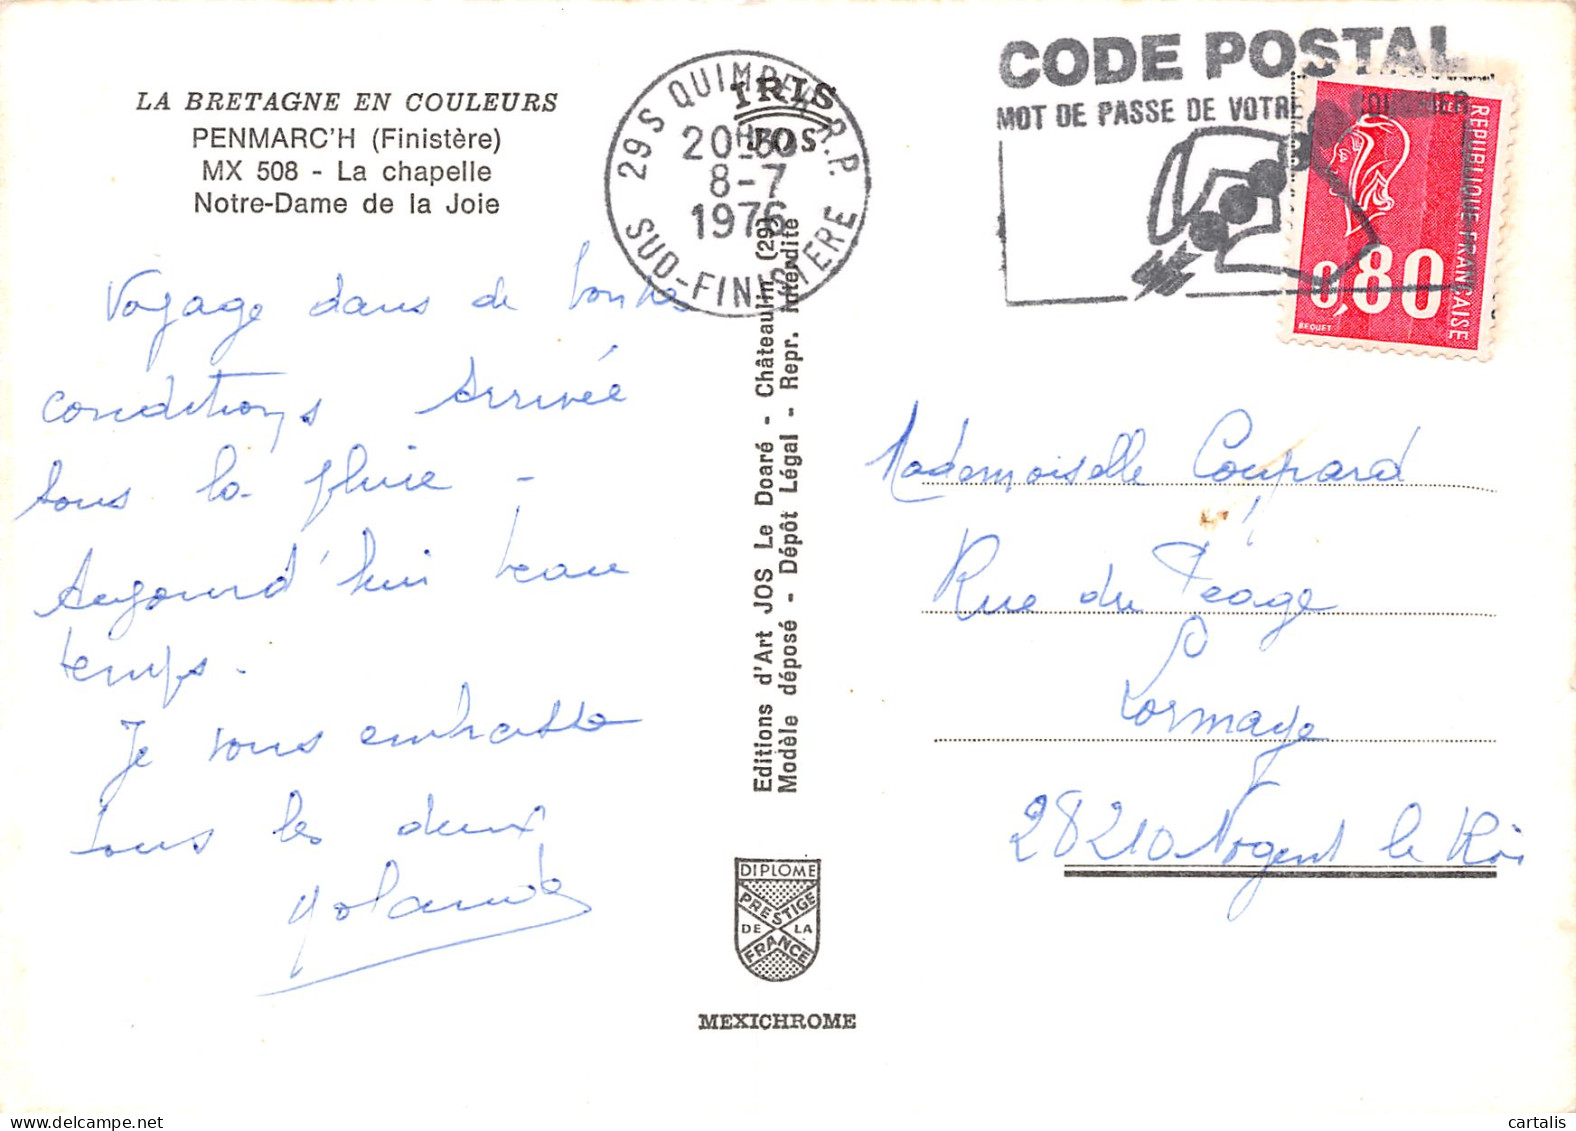 LA BRETAGNE EN COULEURS
PENMARC'H (Finistère)
MX 508 - La chapelle
Notre-Dame de la Joie
Voyage dans de bonnes
conditions Arrivée
sous la pluie -
Aujourd'hui beau
temps.
Je vous embrasse
tous les deux
Yolande
29S QUIMPER R.P.
20H30
8-7
1976
SUD-FINISTERE
IRIS
JOS
Editions d'Art JOS Le Doaré - Châteaulin (29)
Modèle déposé - Dépôt Légal - Repr. Interdite
DIPLOME
PRESTIGE
DE LA
FRANCE
MEXICHROME
CODE POSTAL
MOT DE PASSE DE VOTRE COURRIER
REPUBLIQUE FRANÇAISE
0,80
BEQUET
Mademoiselle Coupard
Rue du Péage
Lormaye
28210 Nogent le Roi
cartalis
delcampe.net